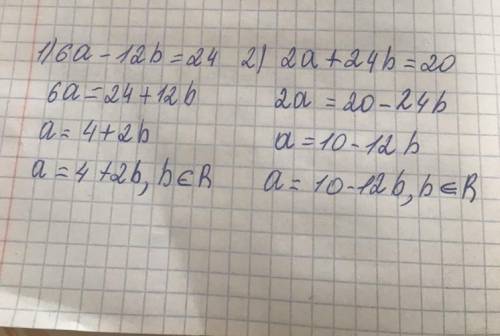 1) 6a - 12b = 24
6a = 24 + 12b
a = 4 + 2b
a = 4 + 2b, b ∈ R
2) 2a + 24b = 20
2a = 20 - 24b
a = 10 - 12b
a = 10 - 12b, b ∈ R